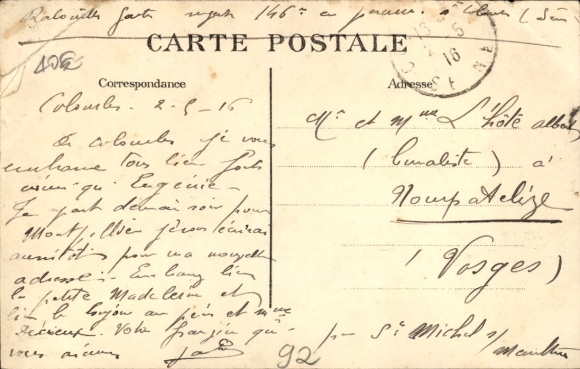 Gaston 146e à Colombes (Seine
CARTE POSTALE
Correspondance
Adresse
Colombes - 2-5-16
De Colombes je vous
embrasse tous bien forts
ainsi qu' Eugénie -
Je part demain soir pour
Montpellier je vous écrirai
aussitôt pour ma nouvelle
adresse. Embrassez bien
la petite Madeleine et
le bonjour au père et mme
Votre qui
vous aime
Mr et Mme L'hôte Albert
( ) à
Nompatelize
(Vosges)
par St Michel s/
Meurthe
92
16